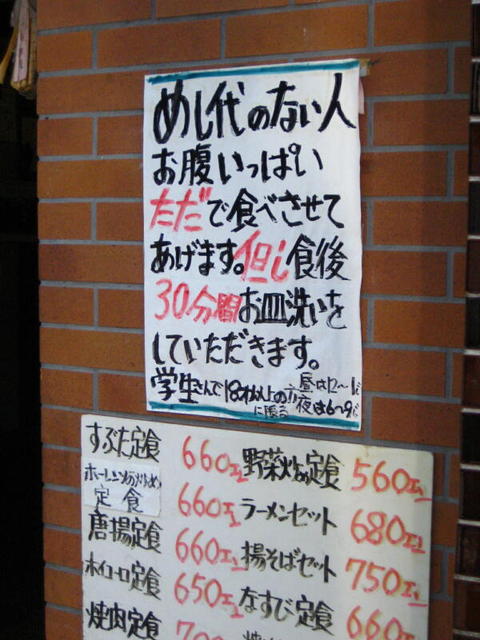 めし代のない人
お腹いっぱい
ただで食べさせて
あげます。但し食後
30分間お皿洗いを
していただきます。
学生さんで18才以上の方に限る
昼は12〜1じ
夜は6〜9じ
すぶた定食 660エン
野菜炒め定食 560エン
ホーレン草炒め定食 660エン
ラーメンセット 680エン
唐揚定食 660エン
揚そばセット 750エン
ホイコーロ定食 650エン
なすび定食 660エン
焼肉定食